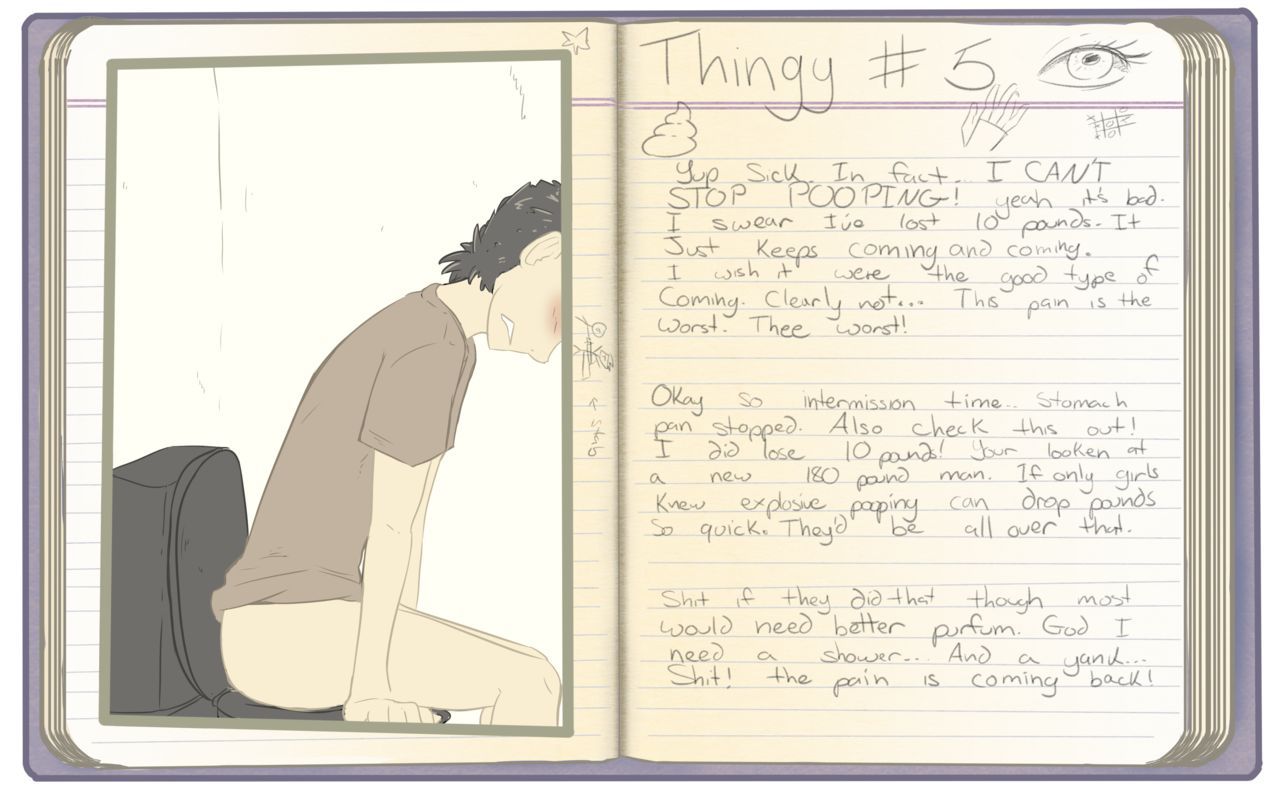 Thingy # 5
Yup Sick. In fact... I CAN'T
STOP POOPING! yeah it's bad.
I swear I've lost 10 pounds. It
Just Keeps coming and coming.
I wish it were the good type of
Coming. Clearly not... This pain is the
worst. Thee worst!
Okay so intermission time... Stomach
pan stopped. Also check this out!
I did lose 10 pounds! Your looken at
a new 180 pound man. If only girls
Knew explosive pooping can drop pounds
so quick. They'd be all over that.
Shit if they did that though most
would need better purfum. God I
need a shower... And a yank...
Shit! the pain is coming back!
← Stab